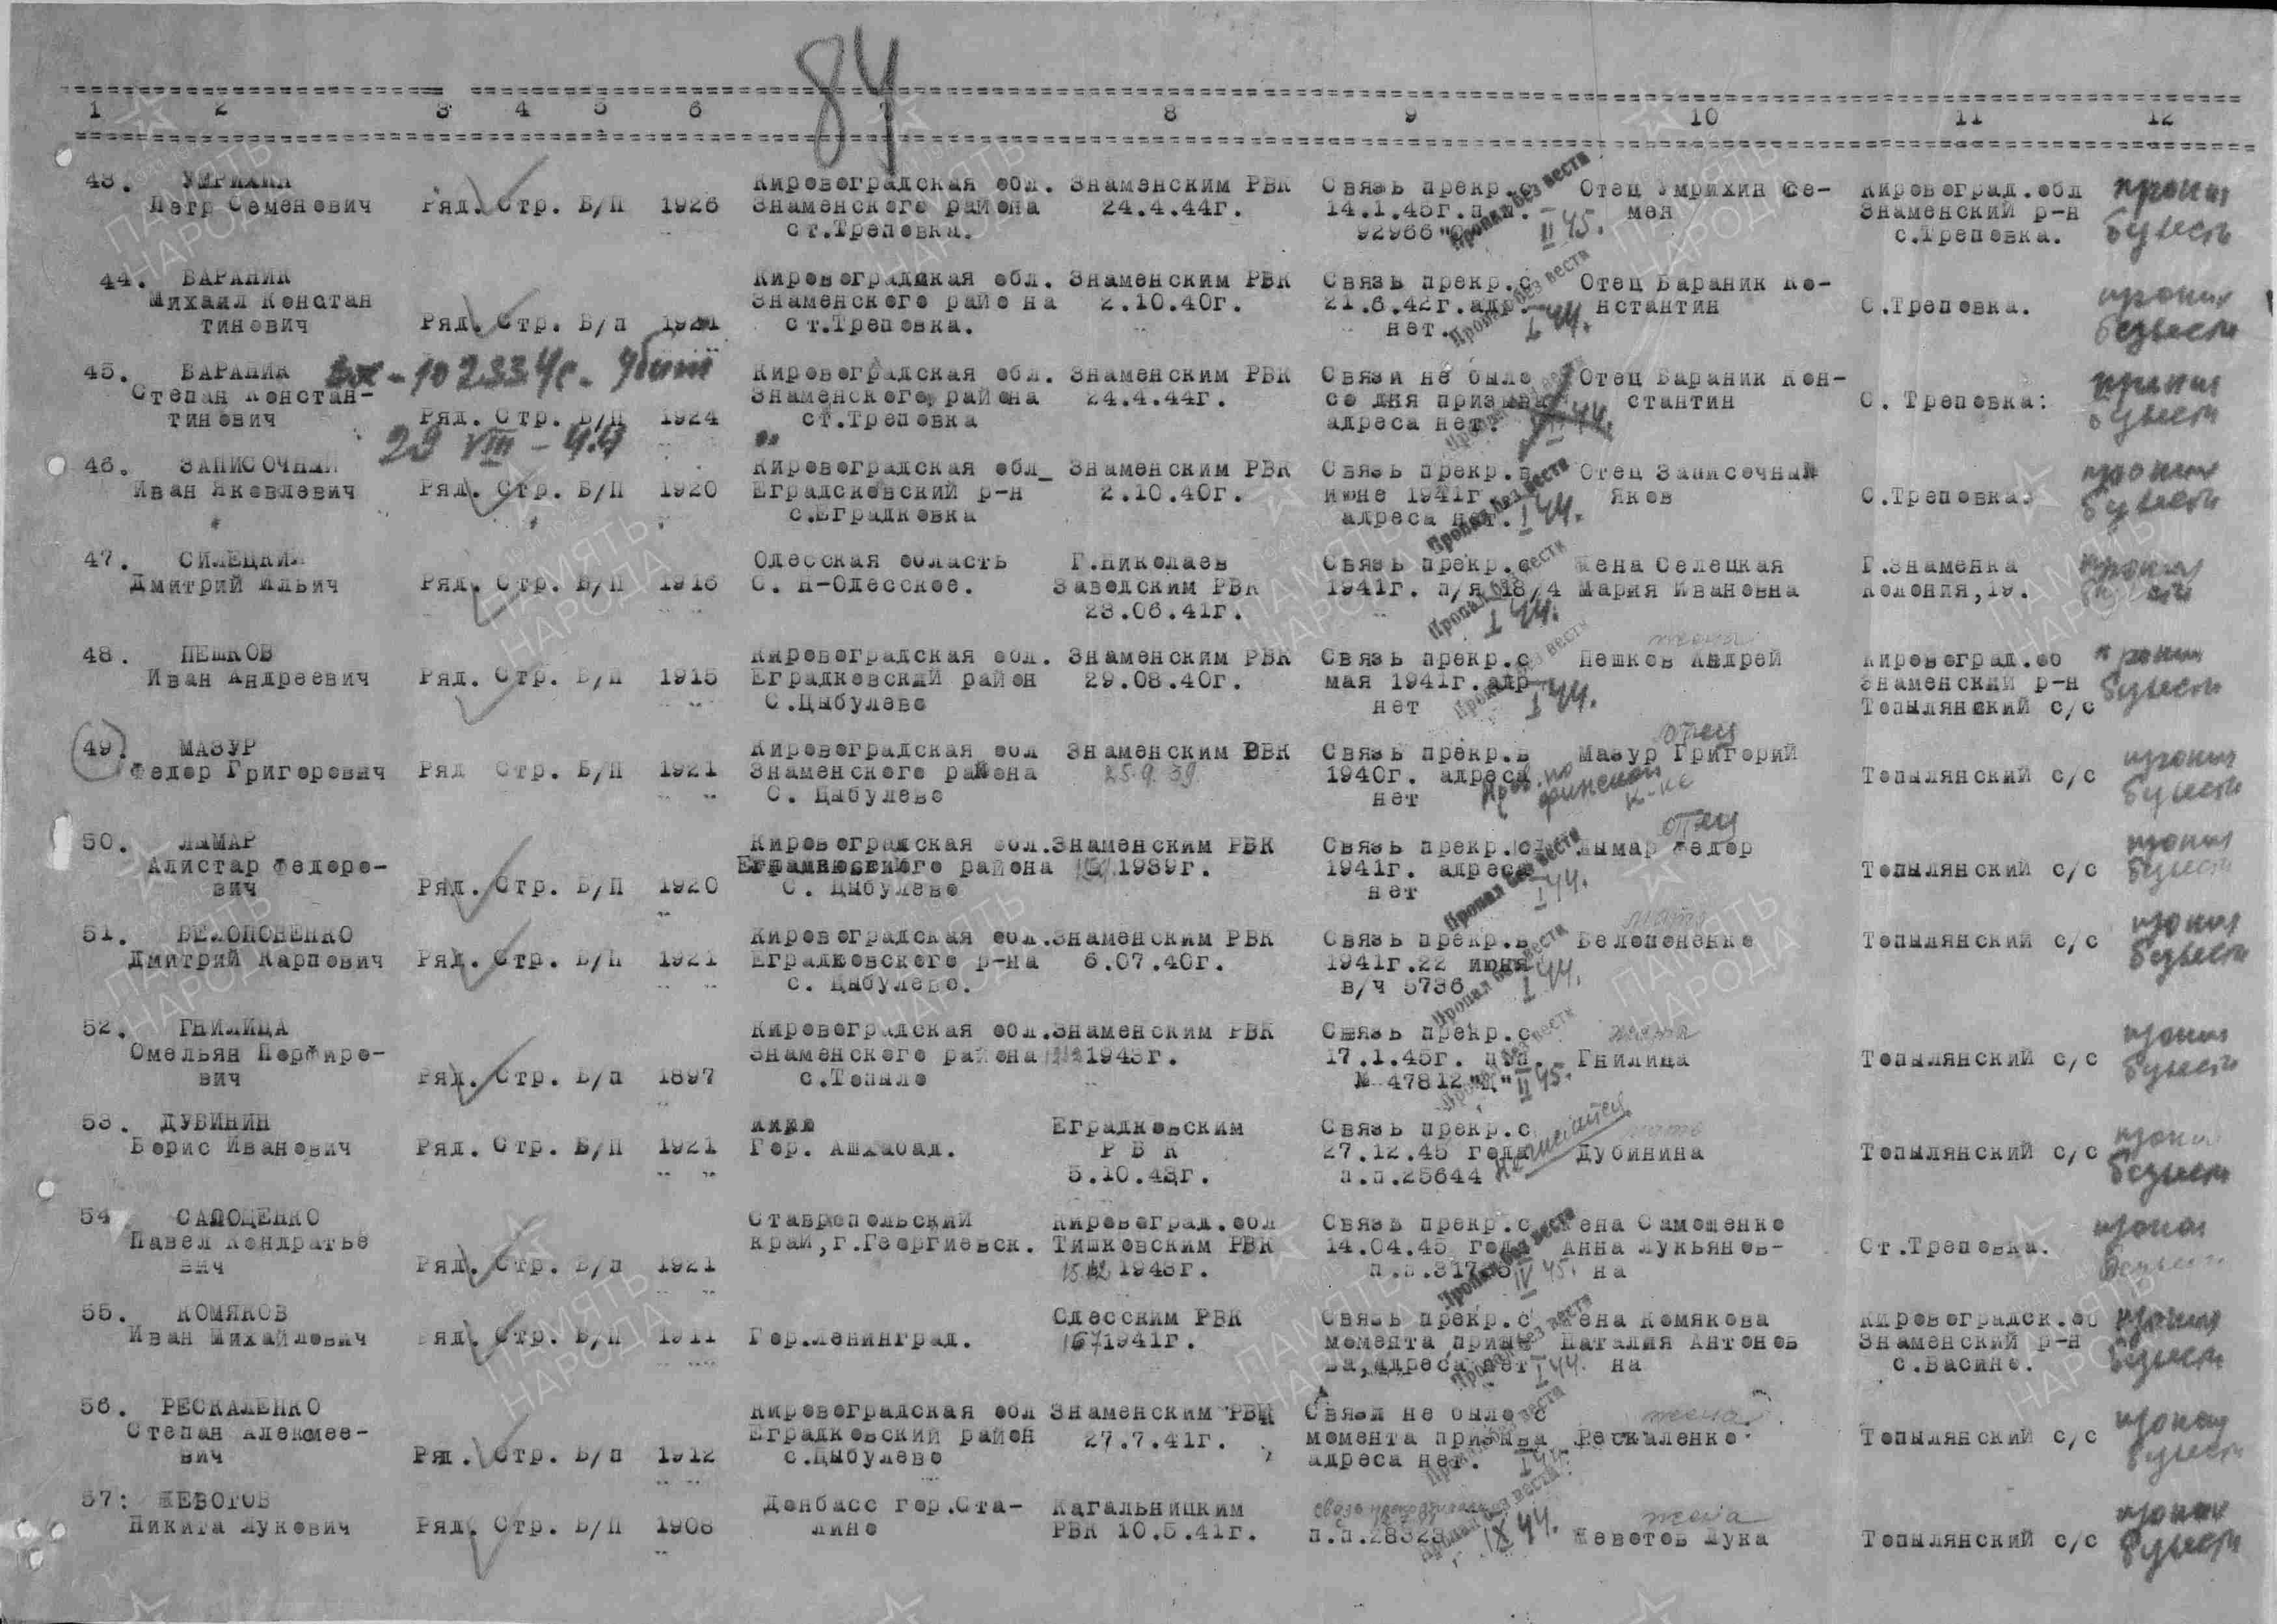 84
1 2 3 4 5 6 7 8 9 10 11 12
43. УМРИХИН Кировоградская обл. Знаменским РВК Связь прекр.с Отец Умрихин Се- Кировоград.обл пропал
Петр Семенович Ряд. Стр. Б/П 1926 Знаменского района 24.4.44г. 14.1.45г.п.п. мен Знаменский р-н безвест
ст.Треповка. 92966 II 45. с.Треповка.
Пропал без вести
44. БАРАНИК Кировоградская обл. Знаменским РВК Связь прекр.с Отец Бараник Ко- пропал
Михаил Констан Знаменского района 2.10.40г. 21.6.42г.адр. нстантин С.Треповка. безвест
тинович Ряд. Стр. Б/п 1921 ст.Треповка. нет. I 44.
Пропал без вести
45. БАРАНИК вх-102334с. Убит Кировоградская обл. Знаменским РВК Связи не было Отец Бараник Кон- пропал
Степан Констан- Знаменского района 24.4.44г. со дня призыва стантин С. Треповка: безвест
тинович Ряд. Стр. Б/П 1924 ст.Треповка адреса нет.
29 VIII - 44
46. ЗАПИСОЧНЫЙ Кировоградская обл_ Знаменским РВК Связь прекр.в Отец Записочный пропал
Иван Яковлевич Ряд. Стр. Б/П 1920 Еградсковский р-н 2.10.40г. июне 1941г Яков С.Треповка: безвест
с.Еградковка адреса нет. I 44.
Пропал без вести
47. СИЛЕЦКИЙ Одесская область Г.Николаев Связь прекр.с Жена Селецкая Г.Знаменка пропал
Дмитрий Ильич Ряд. Стр. Б/П 1916 С. Н-Одесское. Заводским РВК 1941г. п/я 18/4 Мария Ивановна Колония,19.
23.06.41г. I 44.
Пропал без вести
48. ПЕШКОВ Кировоградская обл. Знаменским РВК Связь прекр.с Пешков Андрей Кировоград.об пропал
Иван Андреевич Ряд. Стр. Б/П 1915 Еградковский район 29.08.40г. мая 1941г.адр Знаменский р-н безвест
С.Цыбулево нет I 44. Топылянский с/с
Пропал без вести
отец
49. МАЗУР Кировоградская обл Знаменским РВК Связь прекр.в Мазур Григорий пропал
Федор Григорович Ряд Стр. Б/П 1921 Знаменского района 25.9.39 1940г. адреса Топылянский с/с безвест
С. Цыбулево нет Пров. по финской к-ке
отец
50. ЛЫМАР Кировоградская обл.Знаменским РВК Связь прекр.с Лымар Федор пропал
Алистар Федоро- района 1939г. 1941г. адреса Топылянский с/с безвест
вич Ряд. Стр. Б/П 1920 С. Цыбулево нет I 44.
Пропал без вести
мать
51. БЕЛОПОНЕНКО Кировоградская обл.Знаменским РВК Связь прекр.в Белопоненко Топылянский с/с пропал
Дмитрий Карпович Ряд. Стр. Б/П 1921 Еградковского р-на 6.07.40г. 1941г.22 июня безвест
с. Цыбулево. в/ч 5736 I 44.
Пропал без вести
52. ГНИЛИЦА Кировоградская обл.Знаменским РВК Связь прекр.с жена пропал
Омельян Порфиро- Знаменского района 1943г. 17.1.45г. п.п. Гнилица Топылянский с/с безвест
вич Ряд. Стр. Б/п 1897 с.Топыло № 47812 "Д" II 45.
Пропал без вести
53. ДУБИНИН Еградковским Связь прекр.с мать пропал
Борис Иванович Ряд. Стр. Б/П 1921 Гор. Ашхабад. Р В К 27.12.45 года Дубинина Топылянский с/с безвест
5.10.43г. п.п.25644 Не считать
54 САМОЩЕНКО Ставропольский Кировоград.обл Связь прекр.с Жена Самошенко пропал
Павел Кондратье край,г.Георгиевск. Тишковским РВК 14.04.45 года Анна Лукьянов- Ст.Треповка. безвест
вич Ряд. Стр. Б/п 1921 1943г. IV 45. на
Пропал без вести
55. КОМЯКОВ Одесским РВК Связь прекр.с Жена Комякова Кировоградск.об пропал
Иван Михайлович Ряд. Стр. Б/П 1911 Гор.Ленинград. 1941г. момента призы- Наталия Антонов Знаменский р-н безвест
ва,адреса нет I 44. на с.Васино.
Пропал без вести
56. РЕСКАЛЕНКО Кировоградская обл Знаменским РВК Связи не было с жена пропал
Степан Алексее- Еградковский район 27.7.41г. момента призыва Рескаленко Топылянский с/с безвест
вич Ряд. Стр. Б/п 1912 с.Цыбулево адреса нет. I 44.
Пропал без вести
57: ШЕВОТОВ Донбасс гор.Ста- Кагальницким жена пропал
Никита Лукович Ряд. Стр. Б/П 1908 лино РВК 10.5.41г. п.п.28323 IX 44. Шевотов Лука Топылянский с/с безвест
Пропал без вести
ПАМЯТЬ НАРОДА